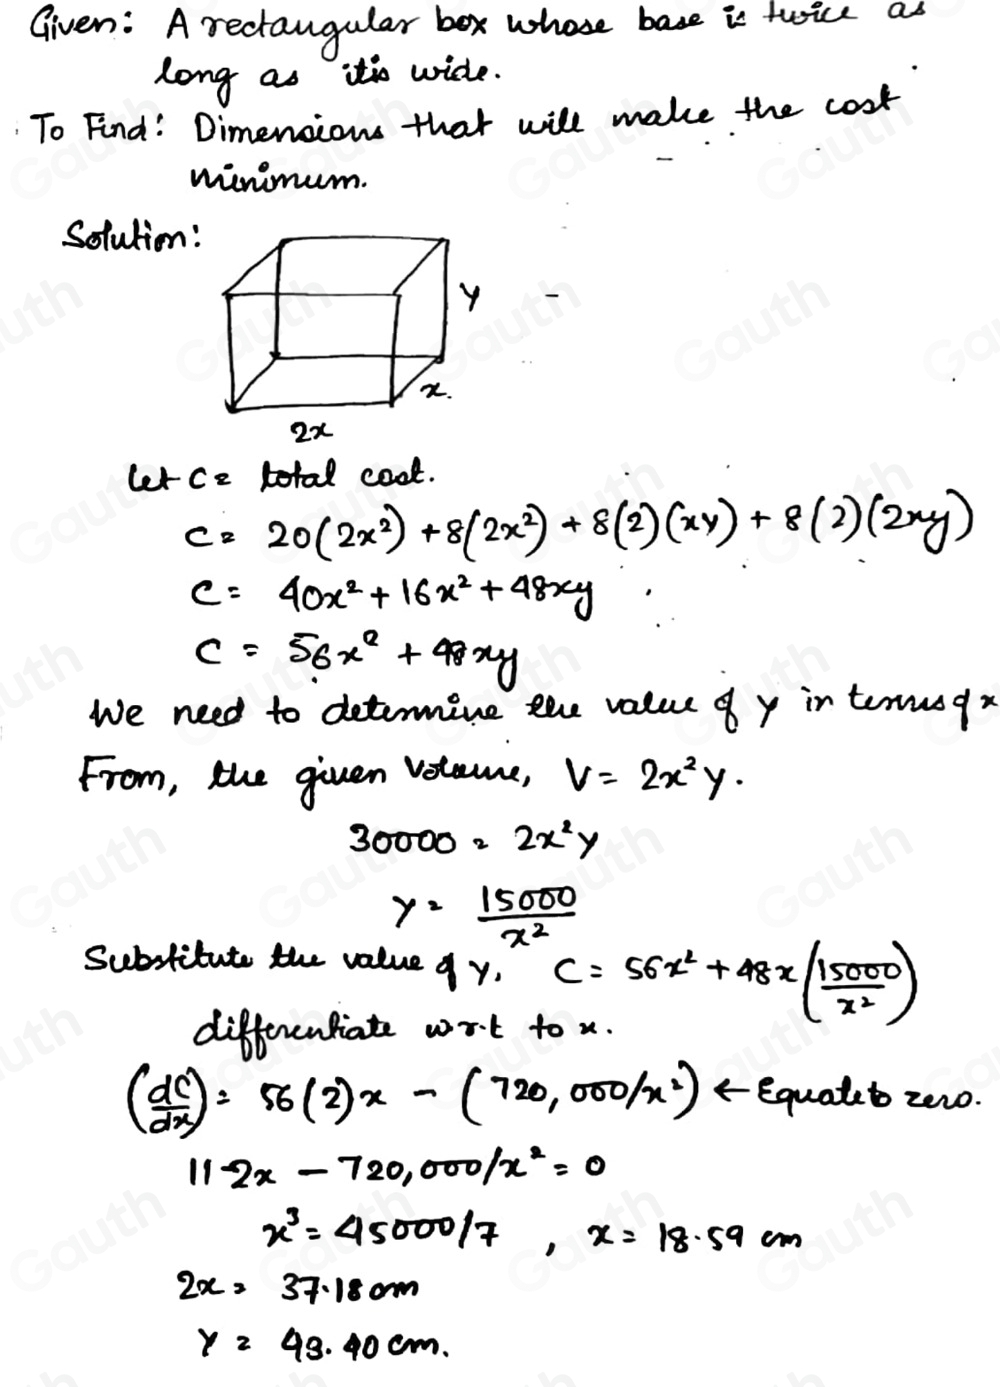 Given: A rectangular box whose base is twice as
long as it's wide.
To Find: Dimensions that will make the cost
minimum.
Solution:
y
x.
2x
let C = total cost.
C = 20(2x²) + 8(2x²) + 8(2)(xy) + 8(2)(2xy)
C = 40x² + 16x² + 48xy
C = 56x² + 48xy
We need to determine the value of y in terms of x
From, the given Volume, V = 2x²y.
30000 = 2x²y
y = 15000/x²
Substitute the value of y, C = 56x² + 48x(15000/x²)
differentiate w.r.t to x.
(dC/dx) = 56(2)x - (720,000/x²) ← Equate to zero.
112x - 720,000/x² = 0
x³ = 45000/7, x = 18.59 cm
2x = 37.18 cm
y = 43.40 cm.